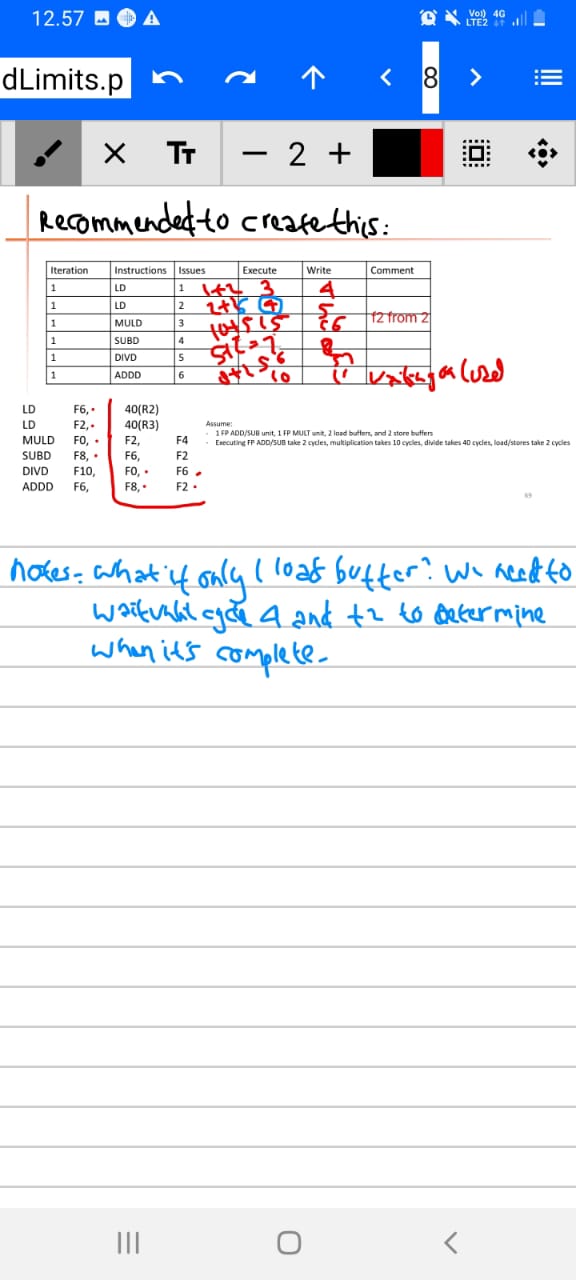 12.57 Vo)) 4G LTE2
dLimits.p 8
TT − 2 +
Recommended to create this:
Iteration Instructions Issues Execute Write Comment
1 LD 1 1+2 3 4
1 LD 2 2+2 4 5
1 MULD 3 10+5 15 16 f2 from 2
1 SUBD 4 5+2=7 8
1 DIVD 5 56 57
1 ADDD 6 8+2 10 11
LD F6, 40(R2)
LD F2, 40(R3)
MULD F0, F2, F4
SUBD F8, F6, F2
DIVD F10, F0, F6
ADDD F6, F8, F2
Assume:
- 1 FP ADD/SUB unit, 1 FP MULT unit, 2 load buffers, and 2 store buffers
- Executing FP ADD/SUB take 2 cycles, multiplication takes 10 cycles, divide takes 40 cycles, load/stores take 2 cycles
notes= what if only 1 load buffer? We need to
wait until cycle 4 and +2 to determine
when it's complete.